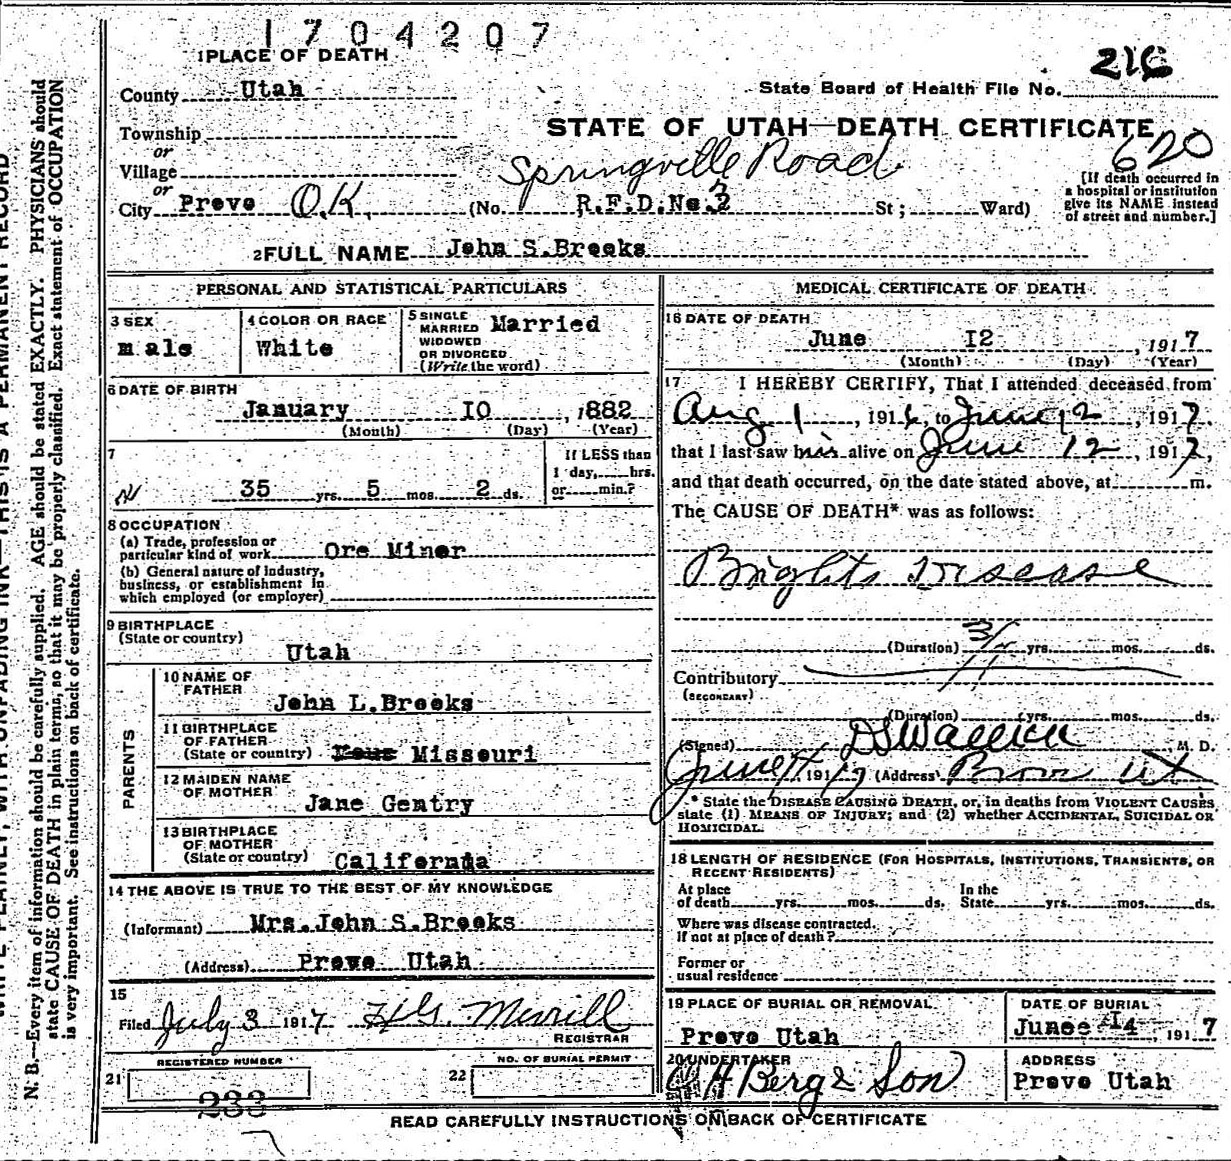 1704207
1 PLACE OF DEATH
216
County Utah
State Board of Health File No.
Township
STATE OF UTAH—DEATH CERTIFICATE
or
Village
Springville Road
620
or
City Provo O.K. (No. R.F.D.No. 2 St; Ward)
[If death occurred in
a hospital or institution
give its NAME instead
of street and number.]
2 FULL NAME John S.Brooks
PERSONAL AND STATISTICAL PARTICULARS
3 SEX
male
4 COLOR OR RACE
White
5 SINGLE
MARRIED
WIDOWED
OR DIVORCED
(Write the word)
Married
6 DATE OF BIRTH
January 10, 1882
(Month) (Day) (Year)
7
35 yrs. 5 mos. 2 ds.
If LESS than
1 day, hrs.
or min.?
8 OCCUPATION
(a) Trade, profession or
particular kind of work Ore Miner
(b) General nature of industry,
business, or establishment in
which employed (or employer)
9 BIRTHPLACE
(State or country)
Utah
PARENTS
10 NAME OF
FATHER
John L.Brooks
11 BIRTHPLACE
OF FATHER
(State or country) Missouri
12 MAIDEN NAME
OF MOTHER
Jane Gentry
13 BIRTHPLACE
OF MOTHER
(State or country) California
14 THE ABOVE IS TRUE TO THE BEST OF MY KNOWLEDGE
(Informant) Mrs.John S.Brooks
(Address) Provo Utah
15
Filed July 3 1917 Merrill
REGISTRAR
REGISTERED NUMBER
21
233
NO. OF BURIAL PERMIT
22
MEDICAL CERTIFICATE OF DEATH
16 DATE OF DEATH
June 12, 1917
(Month) (Day) (Year)
17 I HEREBY CERTIFY, That I attended deceased from
Aug 1, 1916, to June 12, 1917
that I last saw him alive on June 12, 1917,
and that death occurred, on the date stated above, at m.
The CAUSE OF DEATH* was as follows:
Brights Disease
(Duration) yrs. mos. ds.
Contributory
(SECONDARY)
(Duration) yrs. mos. ds.
(Signed) M. D.
June 1917 (Address) Provo Ut
* State the DISEASE CAUSING DEATH, or, in deaths from VIOLENT CAUSES,
state (1) MEANS OF INJURY; and (2) whether ACCIDENTAL, SUICIDAL OR
HOMICIDAL.
18 LENGTH OF RESIDENCE (FOR HOSPITALS, INSTITUTIONS, TRANSIENTS, OR
RECENT RESIDENTS)
At place
of death yrs. mos. ds.
In the
State yrs. mos. ds.
Where was disease contracted,
If not at place of death?
Former or
usual residence
19 PLACE OF BURIAL OR REMOVAL
Provo Utah
DATE OF BURIAL
June 14, 1917
20 UNDERTAKER
Berg & Son
ADDRESS
Provo Utah
READ CAREFULLY INSTRUCTIONS ON BACK OF CERTIFICATE
WRITE PLAINLY, WITH UNFADING INK—THIS IS A PERMANENT RECORD
N. B.—Every item of information should be carefully supplied. AGE should be stated EXACTLY. PHYSICIANS should
state CAUSE OF DEATH in plain terms, so that it may be properly classified. Exact statement of OCCUPATION
is very important. See instructions on back of certificate.